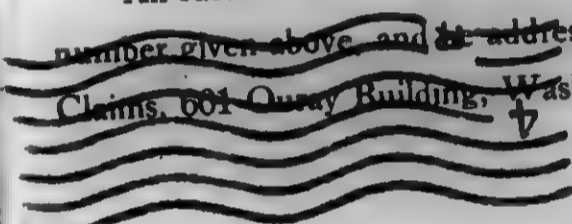 number given above, and addres
Claims, 601 Ouray Building, Was